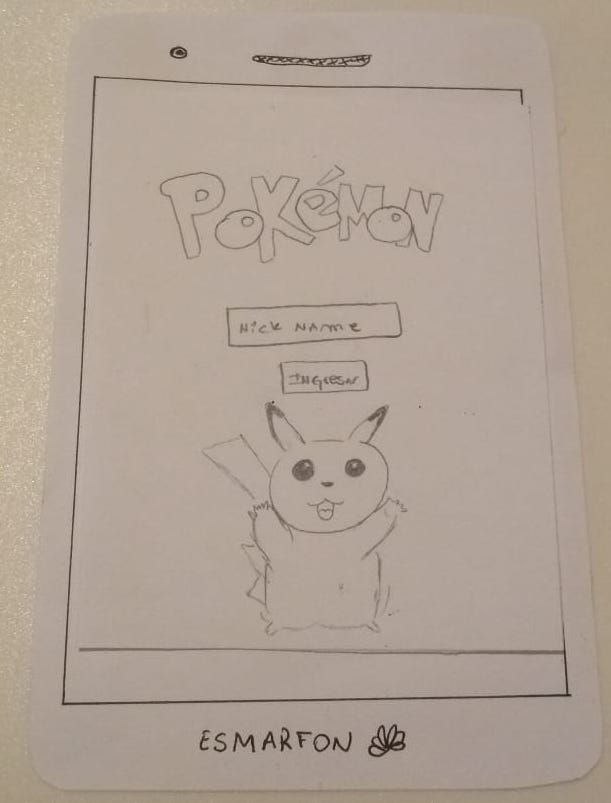 POKéMON
NicK NAME
INGresar
ESMARFON